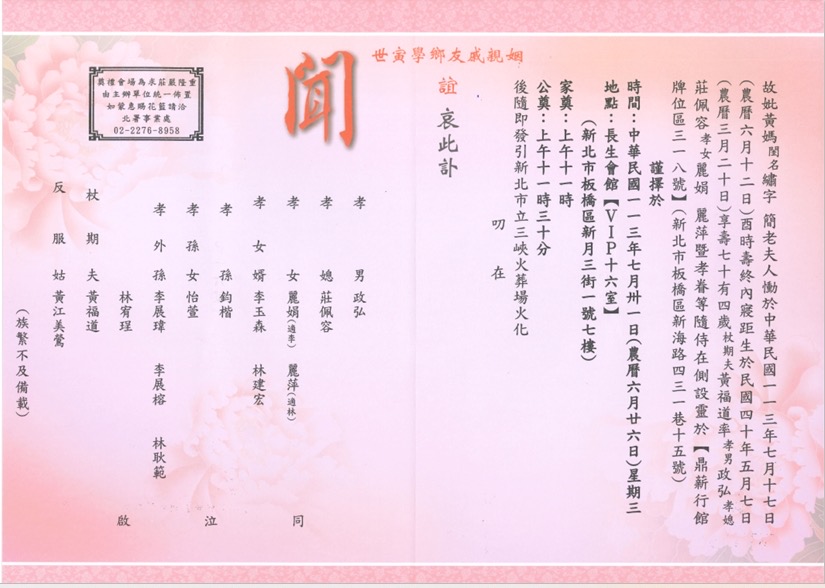 故妣黃媽閨名繡字 簡老夫人慟於中華民國一一三年七月十七日
(農曆六月十二日)酉時壽終內寢距生於民國四十年五月七日
(農曆三月二十日)享壽七十有四歲杖期夫黃福道率孝男政弘孝媳
莊佩容孝女麗娟 麗萍暨孝眷等隨侍在側設靈於【鼎薪行館
牌位區三一八號】(新北市板橋區新海路四三一巷十五號)
謹擇於
時間：中華民國一一三年七月卅一日(農曆六月廿六日)星期三
地點：長生會館【VIP十六室】
(新北市板橋區新月三街一號七樓)
家奠：上午十一時
公奠：上午十一時三十分
後隨即發引新北市立三峽火葬場火化
叨在
世寅學鄉友戚親姻
誼 哀此訃
聞
奠禮會場為求莊嚴隆重
由主辦單位統一佈置
如蒙惠賜花籃請洽
北署事業處
02-2276-8958
孝男 政弘
孝媳 莊佩容
孝女 麗娟(適李) 麗萍(適林)
孝女婿 李玉森 林建宏
孝孫 鈞楷
孝孫女 怡萱
孝外孫 李展瑋 李展榕 林耿範
林宥瑆
杖期夫 黃福道
反服姑 黃江美鶯
同
泣
啟
(族繁不及備載)